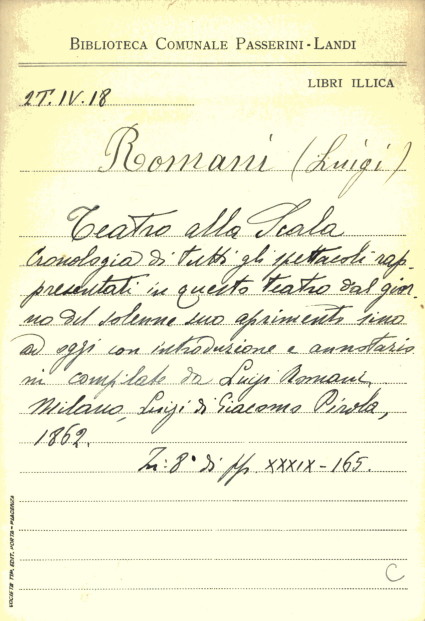 BIBLIOTECA COMUNALE PASSERINI-LANDI
LIBRI ILLICA
2T.IV.18
Romani (Luigi)
Teatro alla Scala
Cronologia di tutti gli spettacoli rap-
presentati in questo teatro dal gior-
no del solenne suo aprimento sino
ad oggi con introduzione e annotazio
ni compilate da Luigi Romani,
Milano, Luigi di Giacomo Pirola,
1862.
In: 8° di pp. XXXIX-165.
C
SOCIETÀ TIP. EDIT. PORTA - PIACENZA